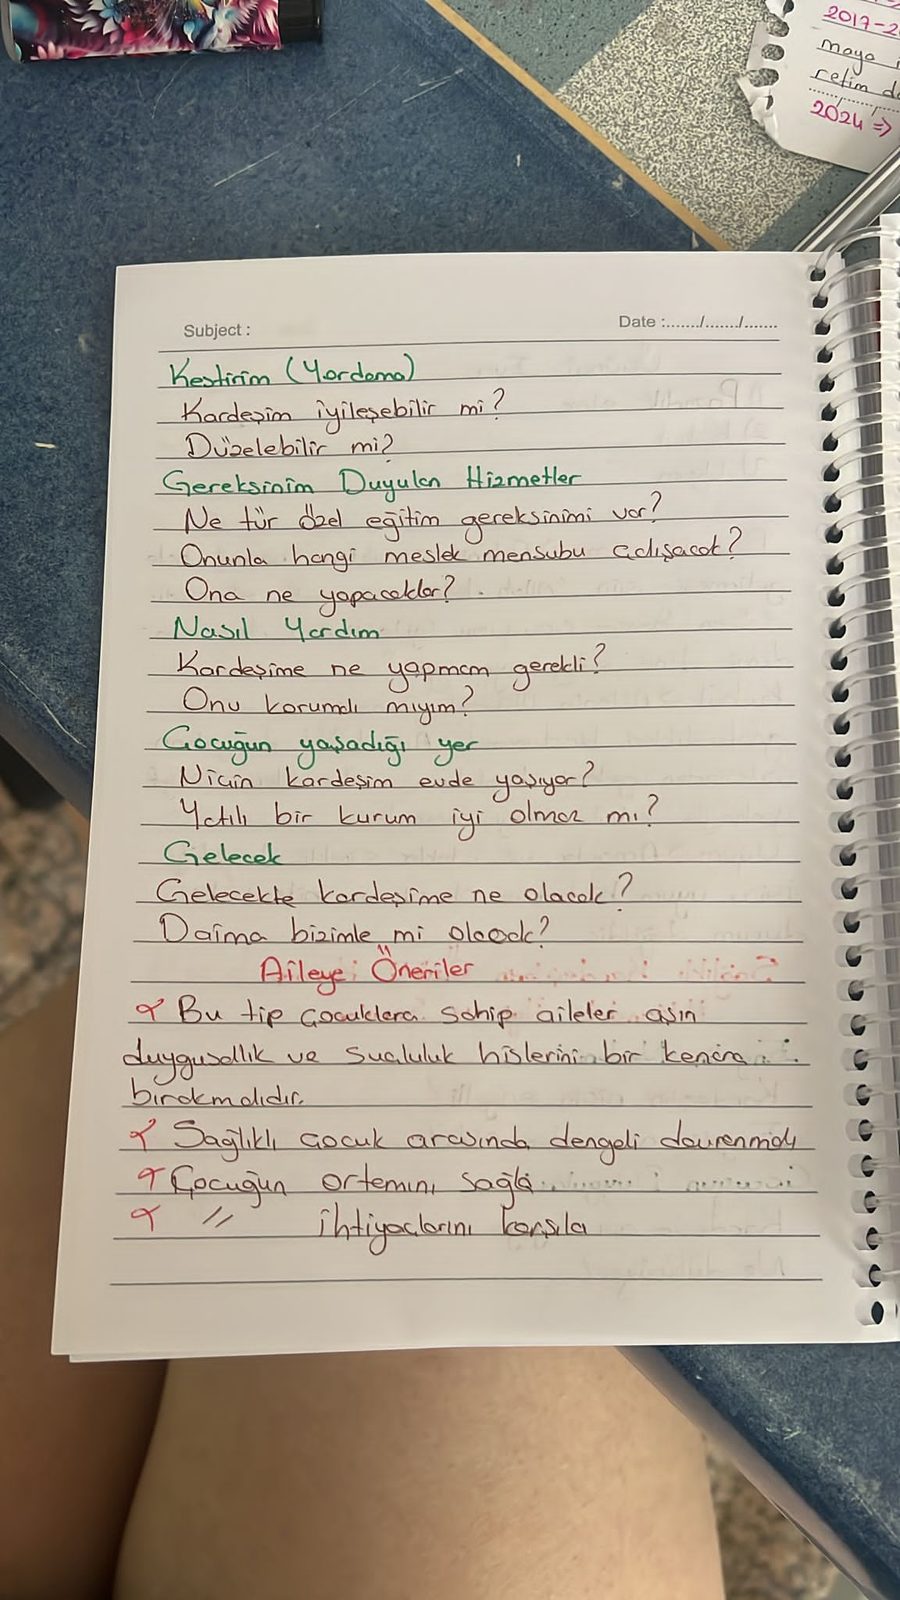 2017-2
maya i
retim de
2024 =>
Subject :
Date :......./......./.......
Kestirim (Yordama)
Kardeşim iyileşebilir mi?
Düzelebilir mi?
Gereksinim Duyulan Hizmetler
Ne tür özel eğitim gereksinimi var?
Onunla hangi meslek mensubu çalışacak?
Ona ne yapacaklar?
Nasıl Yardım
Kardeşime ne yapmam gerekli?
Onu korumalı mıyım?
Çocuğun yaşadığı yer
Niçin kardeşim evde yaşıyor?
Yatılı bir kurum iyi olmaz mı?
Gelecek
Gelecekte kardeşime ne olacak?
Daima bizimle mi olacak?
Aileye Öneriler
Bu tip çocuklara sahip aileler aşırı
duygusallık ve suçluluk hislerini bir kenara
bırakmalıdır.
Sağlıklı çocuk arasında dengeli davranmalı
Çocuğun ortamını sağla
" ihtiyaçlarını karşıla